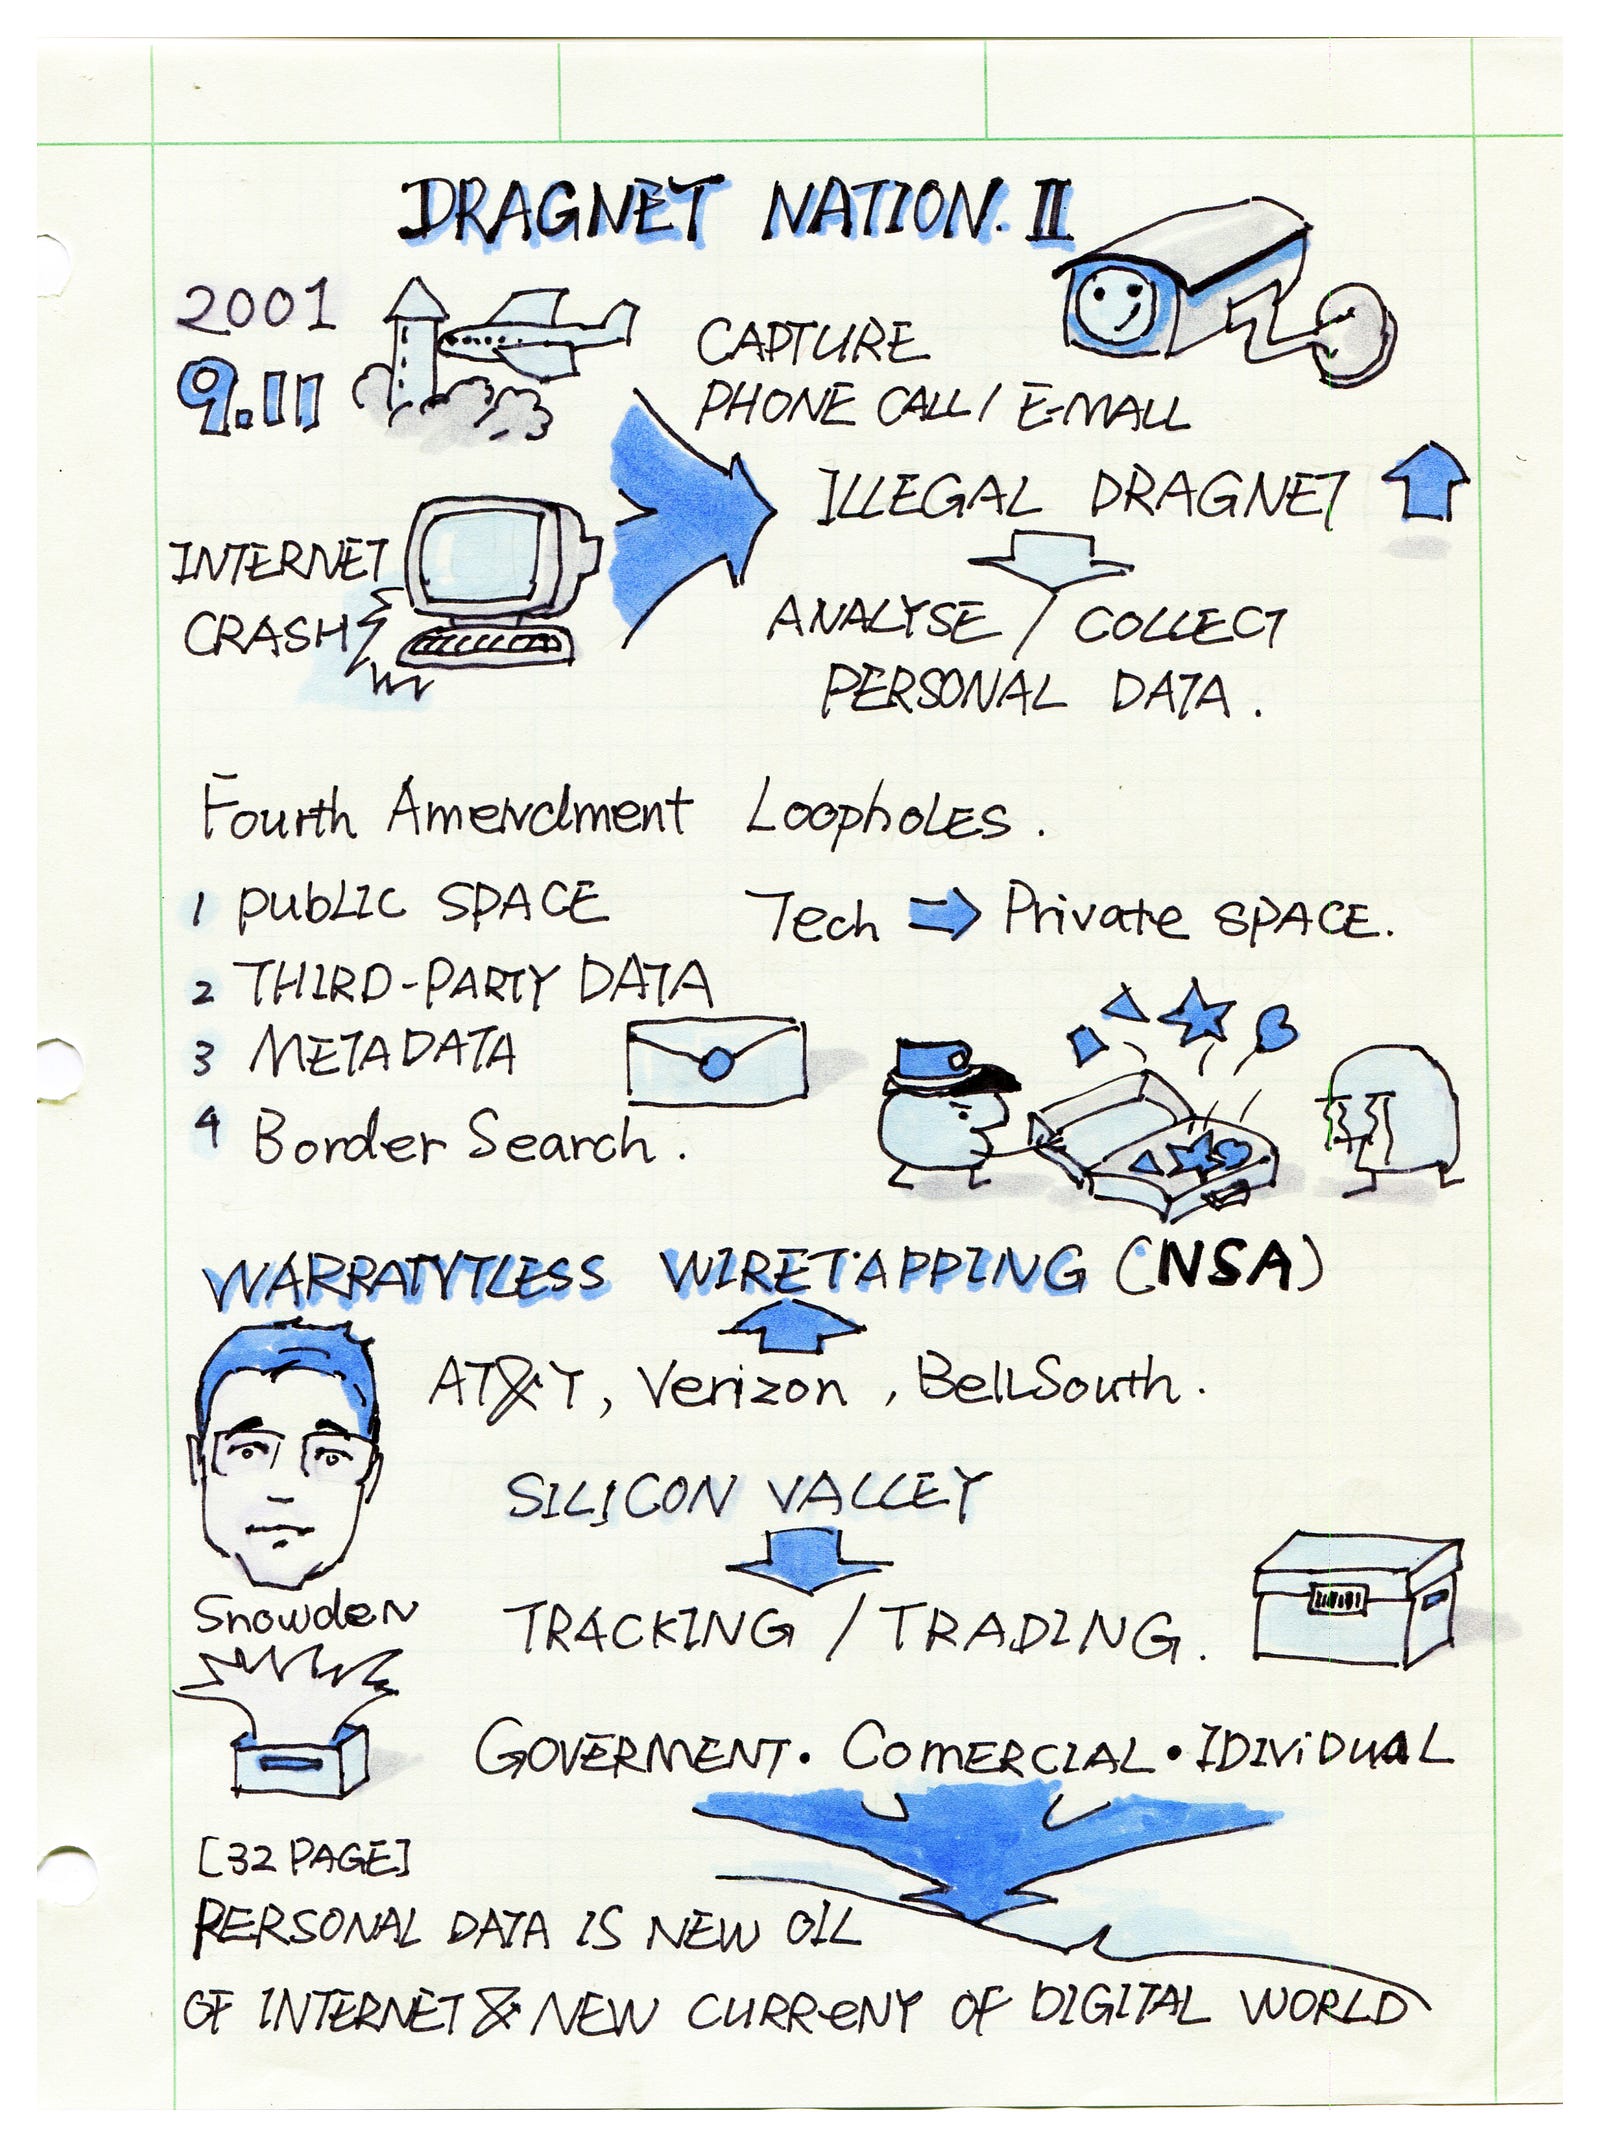 DRAGNET NATION. II
2001
9.11
CAPTURE
PHONE CALL / E-MALL
ILLEGAL DRAGNET
INTERNET
CRASH
ANALYSE / COLLECT
PERSONAL DATA.
Fourth Amendment LoophoLES.
1 pubLIC SPACE
Tech Private SPACE.
2 THIRD-PARTY DATA
3 METADATA
4 Border Search.
WARRATYTLESS WIRETAPPING (NSA)
AT&T, Verizon, BellSouth.
SILICON VALLEY
Snowden
TRACKING / TRADING.
GOVERMENT • COMERCIAL • IDIViDUAL
[32 PAGE]
PERSONAL DATA IS NEW OIL
OF INTERNET & NEW CURReNY OF DIGITAL WORLD